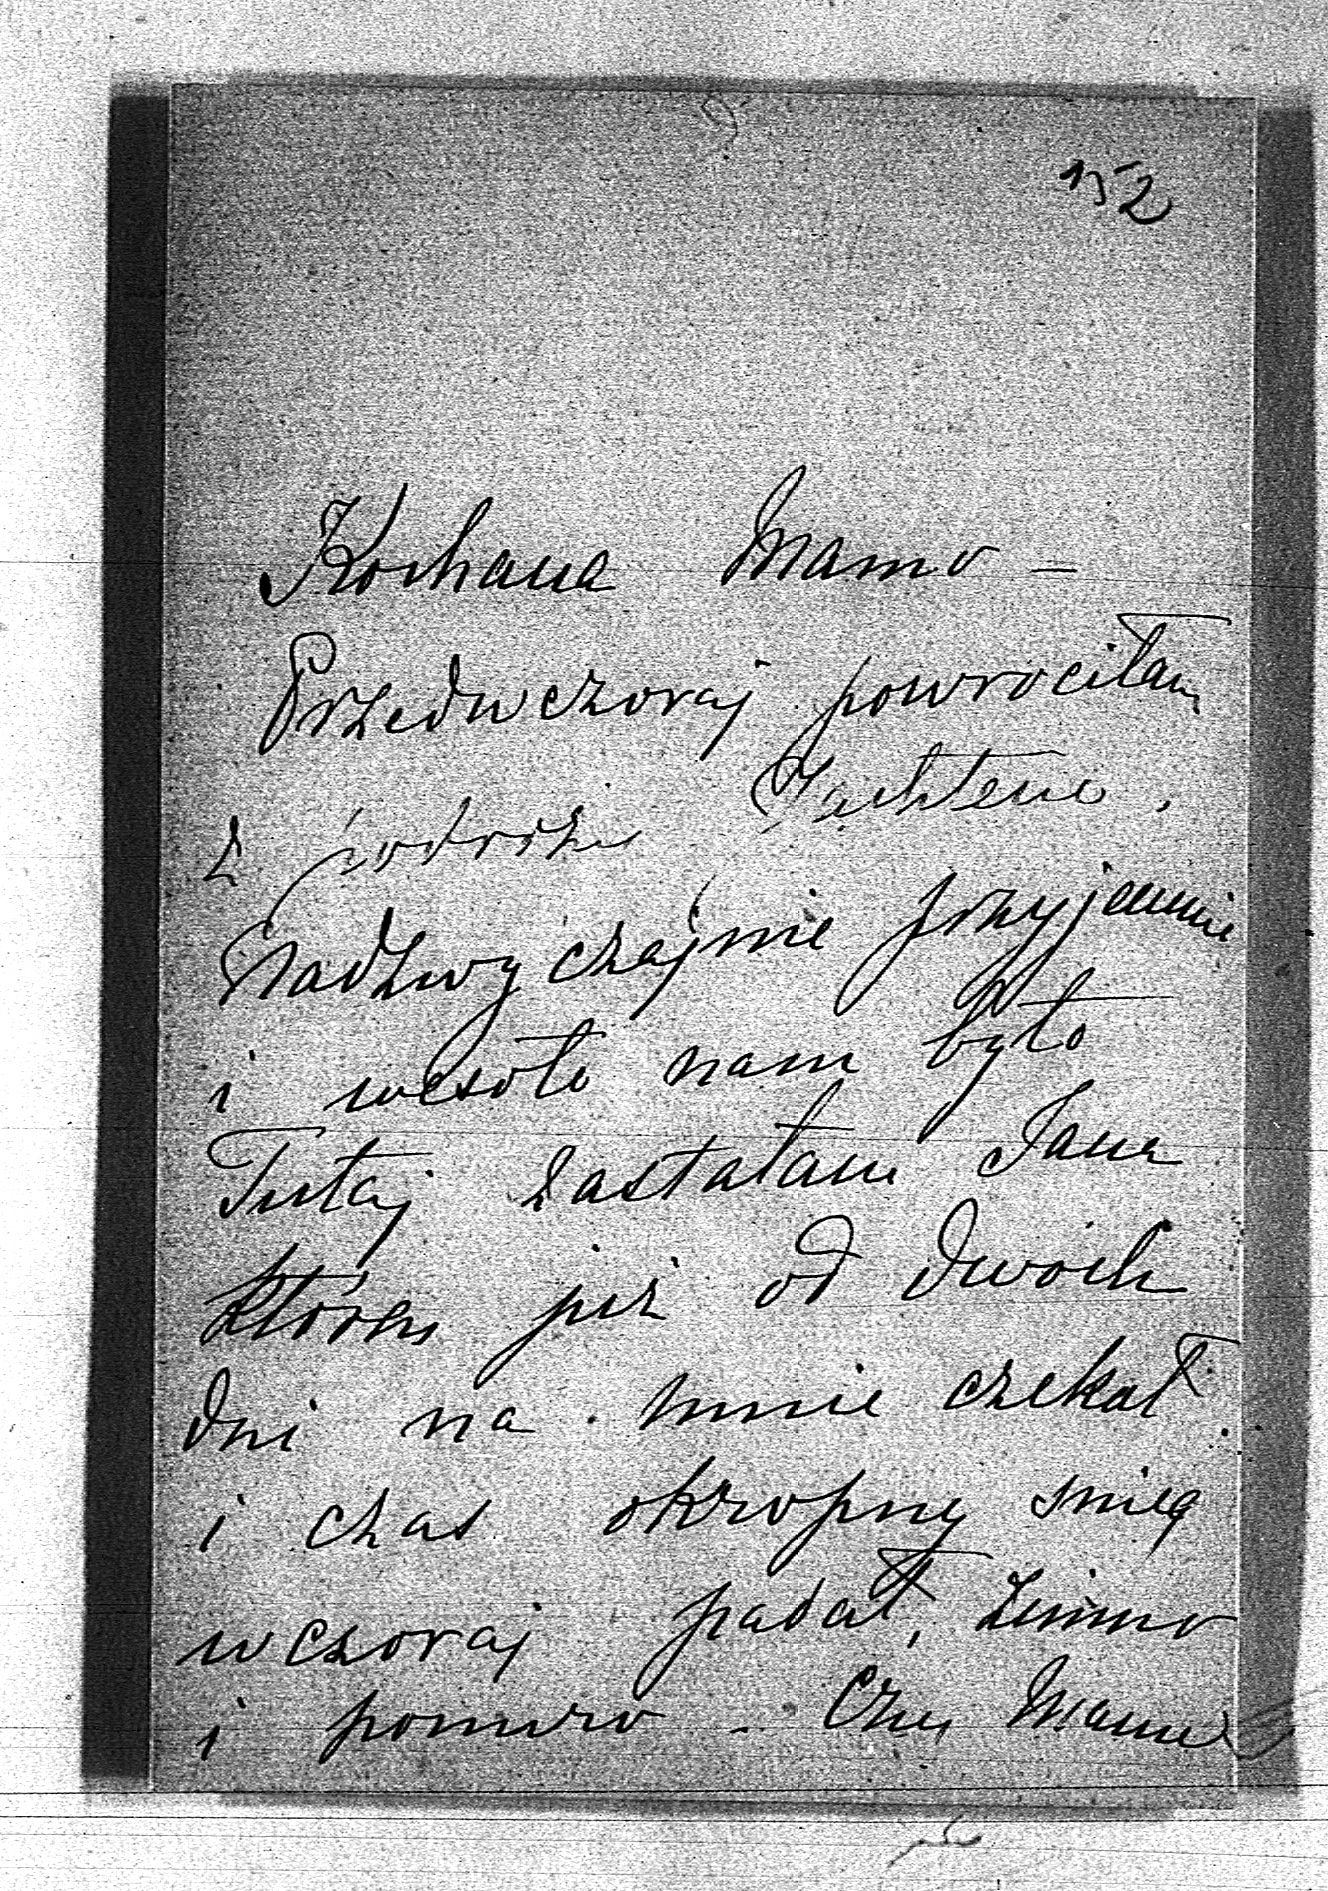 152
Kochana Mamo –
Przedwczoraj powrociłam
z podróży Jachtem,
Nadzwyczajnie przyjemnie
i wesoło nam było
Tutaj zastałam Jana
który już od dwóch
dni na mnie czekał
i czas okropny snieg
wczoraj padał, zimno
i ponuro – Czy Mama